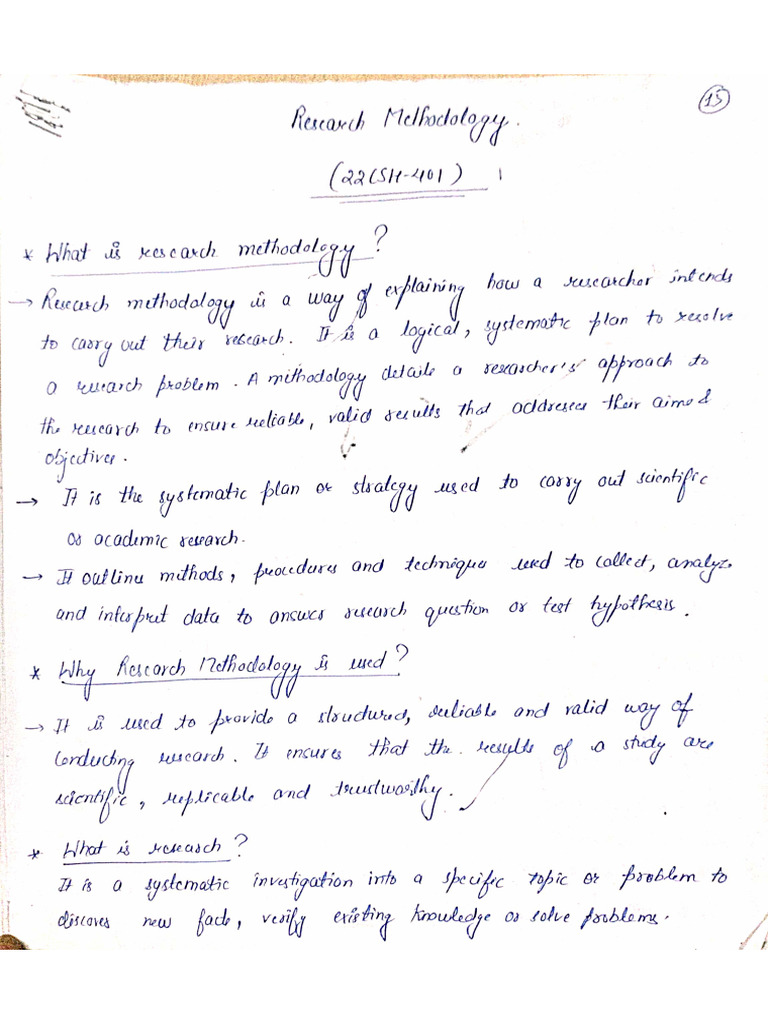 15
Research Methodology.
(22CSH-401)
* What is research methodology?
→ Research methodology is a way of explaining how a researcher intends
to carry out their research. It is a logical, systematic plan to resolve
a research problem. A methodology details a researcher's approach to
the research to ensure reliable, valid results that addresses their aims &
objectives.
→ It is the systematic plan or strategy used to carry out scientific
or academic research.
→ It outline methods, procedures and techniques used to collect, analyze
and interpret data to answer research question or test hypothesis.
* Why Research Methodology is used?
→ It is used to provide a structured, reliable and valid way of
conducting research. It ensures that the results of a study are
scientific, replicable and trustworthy.
* What is research?
It is a systematic investigation into a specific topic or problem to
discover new facts, verify existing knowledge or solve problems.